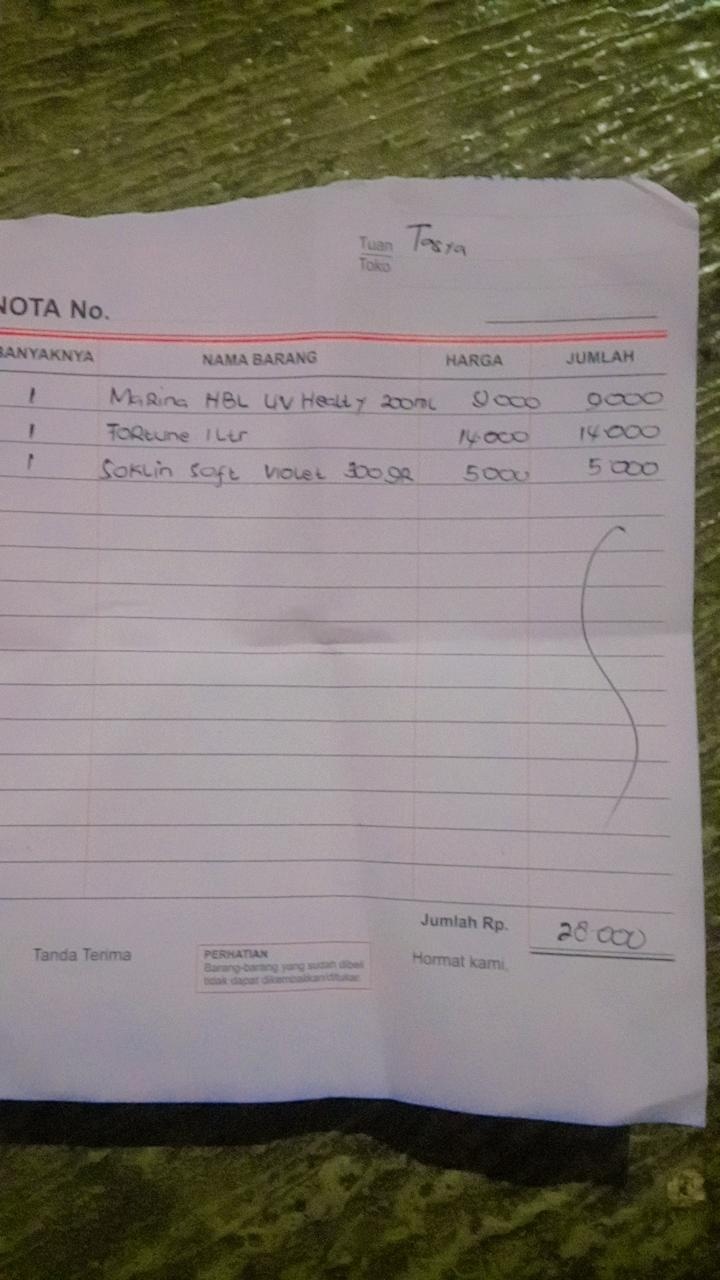 Tuan Tasya
Toko
NOTA No.
BANYAKNYA NAMA BARANG HARGA JUMLAH
1 Marina HBL UV Healty 200ml 9000 9000
1 Fortune 1 Ltr 14.000 14.000
1 Soklin Soft Violet 300gr 5000 5.000
Jumlah Rp. 28.000
Tanda Terima
PERHATIAN
Barang-barang yang sudah dibeli
tidak dapat dikembalikan/ditukar.
Hormat kami,